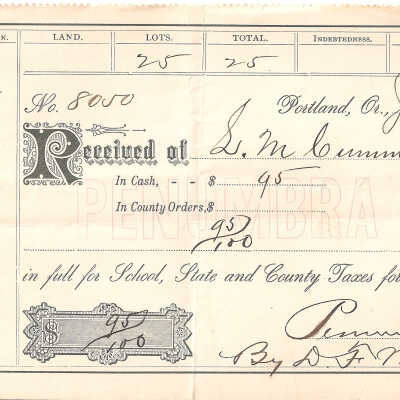 LAND. LOTS. TOTAL. INDEBTEDNESS.
25 25
No. 8050 Portland, Or.,
Received of L. M.
In Cash, - - $ 95
In County Orders, $
PENUMBRA
95/100
in full for School, State and County Taxes for
$ 95/100
By D. F.